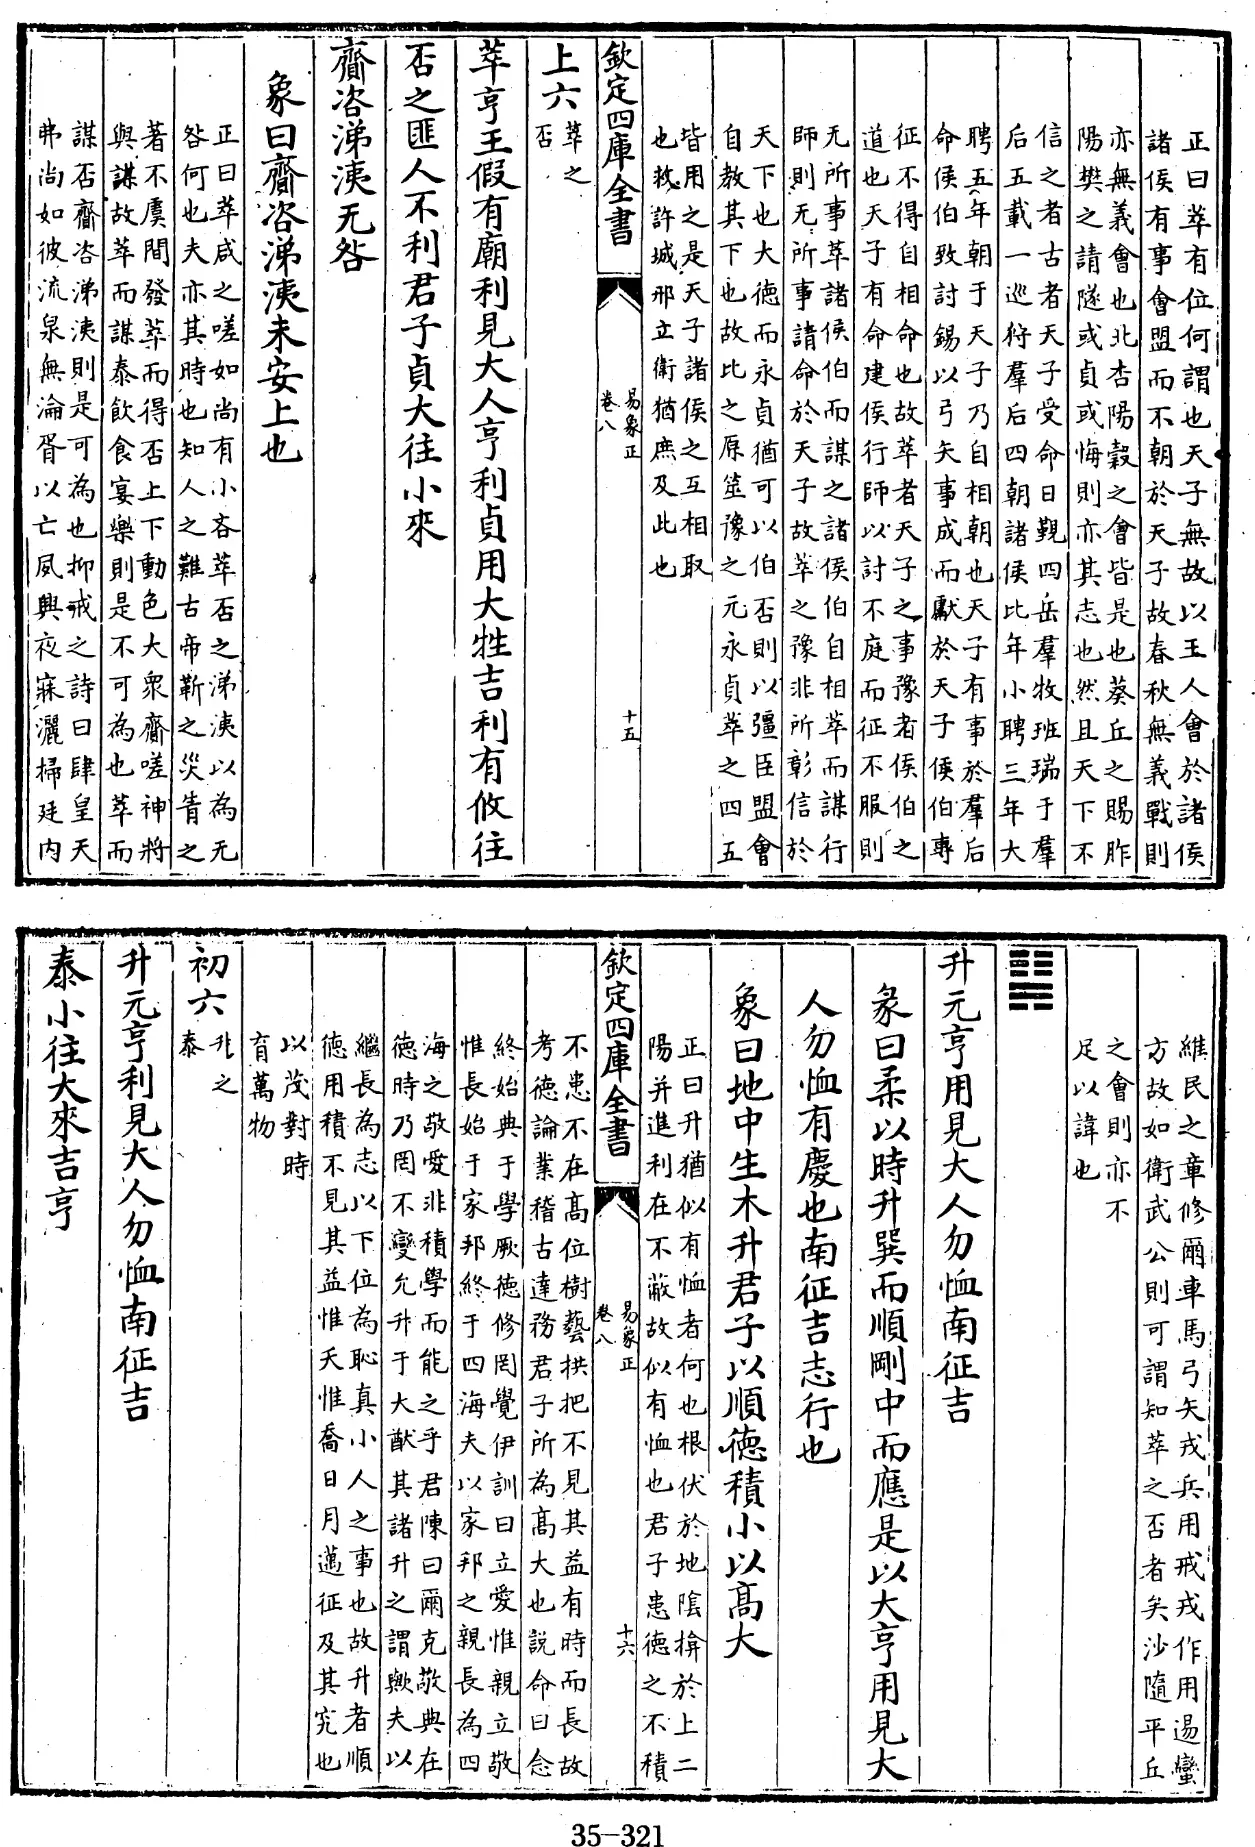 正曰萃有位何謂也天子無故以王人會於諸侯
諸侯有事會盟而不朝於天子故春秋無義戰則
亦無義會也北杏陽穀之會皆是也葵丘之賜胙
陽樊之請隧或貞或悔則亦其志也然且天下不
信之者古者天子受命日覲四岳羣牧班瑞于羣
后五載一巡狩羣后四朝諸侯比年小聘三年大
聘五年朝于天子乃自相朝也天子有事於羣后
命侯伯致討錫以弓矢事成而獻於天子侯伯專
征不得自相命也故萃者天子之事豫者侯伯之
道也天子有命建侯行師以討不庭而征不服則
无所事萃諸侯伯而謀之諸侯伯自相萃而謀行
師則无所事請命於天子故萃之豫非所彰信於
天下也大德而永貞猶可以伯否則以彊臣盟會
自教其下也故比之原筮豫之元永貞萃之四五
皆用之是天子諸侯之互相取
也救許城邢立衛猶庶及此也
欽定四庫全書
易象正
卷八
十五
上六萃之
否
萃亨王假有廟利見大人亨利貞用大牲吉利有攸往
否之匪人不利君子貞大往小來
齎咨涕洟无咎
象曰齎咨涕洟未安上也
正曰萃咸之嗟如尚有小吝萃否之涕洟以為无
咎何也夫亦其時也知人之難古帝靳之災眚之
著不虞間發萃而得否上下動色大衆齎嗟神將
與謀故萃而謀泰飲食宴樂則是不可為也萃而
謀否齎咨涕洟則是可為也抑戒之詩曰肆皇天
弗尚如彼流泉無淪胥以亡夙興夜寐灑掃廷內
維民之章修爾車馬弓矢戎兵用戒戎作用逷蠻
方故如衛武公則可謂知萃之否者矣沙隨平丘
之會則亦不
足以諱也
升元亨用見大人勿恤南征吉
彖曰柔以時升巽而順剛中而應是以大亨用見大
人勿恤有慶也南征吉志行也
象曰地中生木升君子以順德積小以高大
正曰升猶似有恤者何也根伏於地陰揜於上二
陽并進利在不蔽故似有恤也君子患德之不積
欽定四庫全書
易象正
卷八
十六
不患不在高位樹藝拱把不見其益有時而長故
考德論業稽古達務君子所為高大也說命曰念
終始典于學厥德修罔覺伊訓曰立愛惟親立敬
惟長始于家邦終于四海夫以家邦之親長為四
海之敬愛非積學而能之乎君陳曰爾克敬典在
德時乃罔不變允升于大猷其諸升之謂歟夫以
繼長為志以下位為恥真小人之事也故升者順
德用積不見其益惟夭惟喬日月邁征及其究也
以茂對時
育萬物
初六升之
泰
升元亨利見大人勿恤南征吉
泰小往大來吉亨
35-321